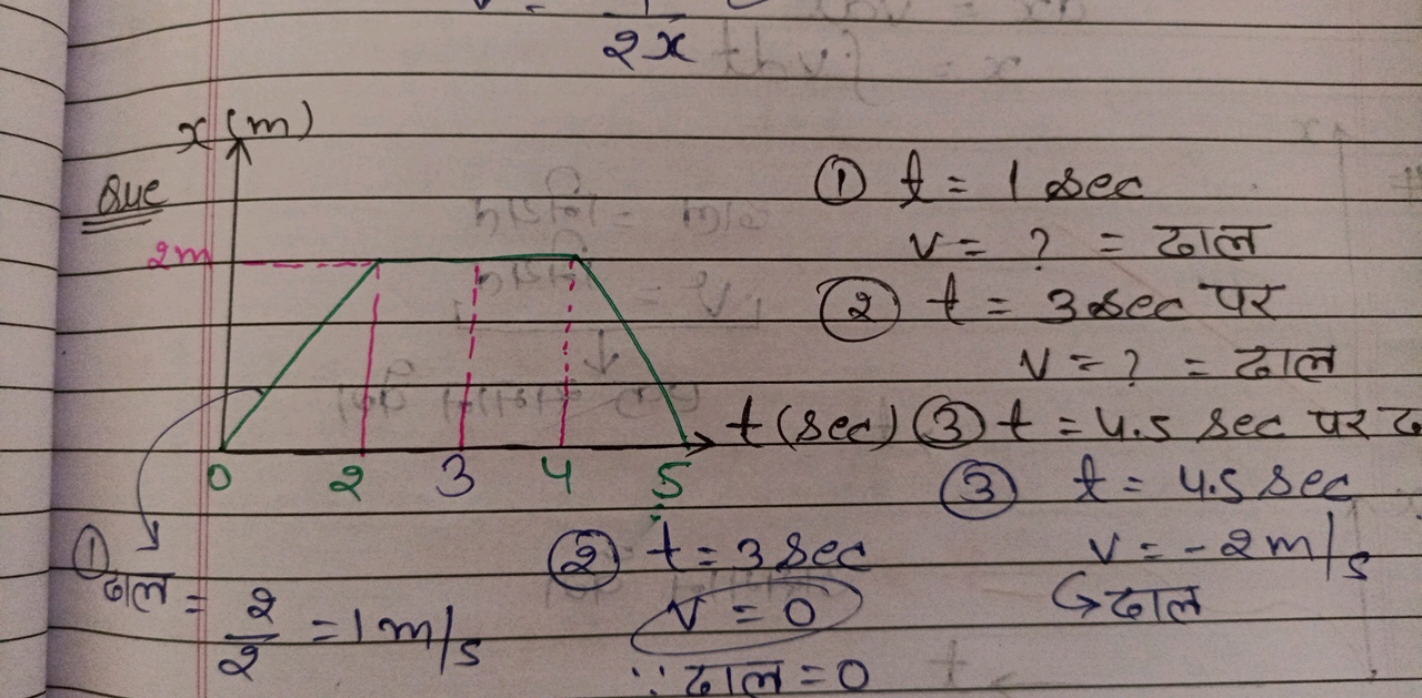 2x
x(m)
Que
2m
① t = 1 sec
v = ? = ढाल
② t = 3 sec पर
v = ? = ढाल
t (sec) ③ t = 4.5 sec पर
0 2 3 4 5
③ t = 4.5 sec
v = -2m/s
↳ ढाल
① ढाल = 2/2 = 1m/s
② t = 3 sec
v = 0
∵ ढाल = 0